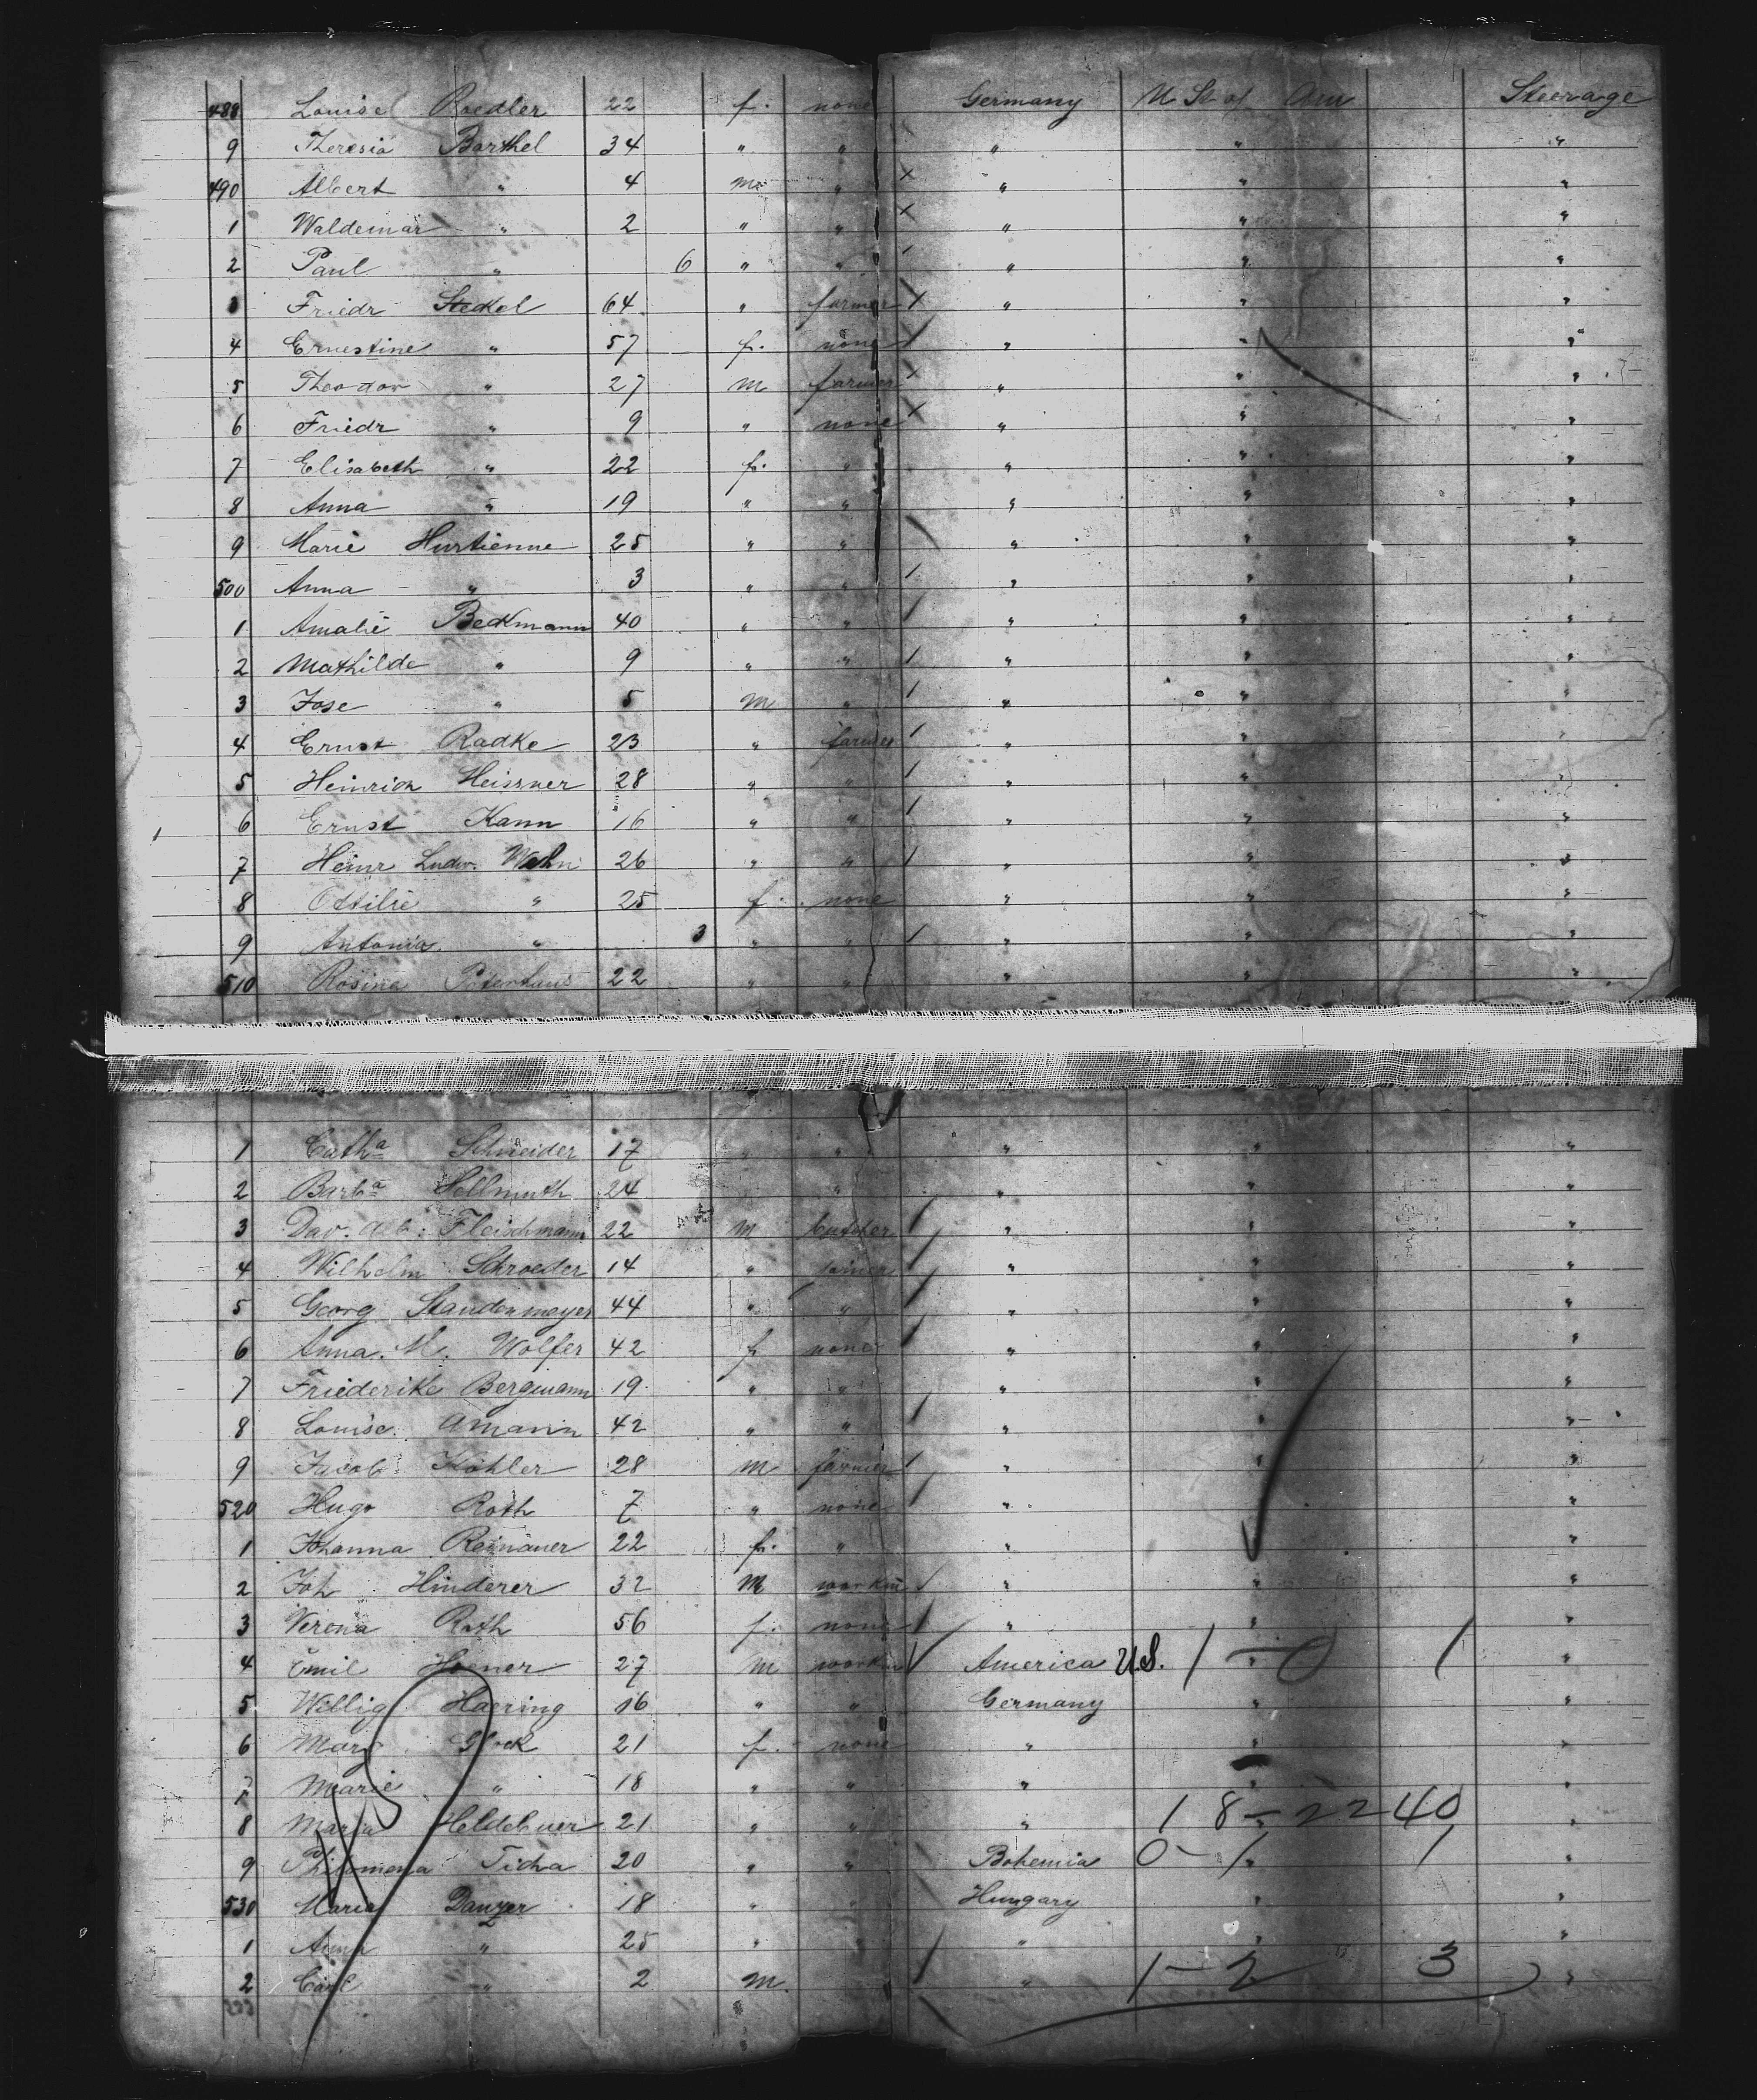 488 Louise Roedler 22 f. none Germany U St of Am Steerage
9 Theresia Barthel 34 " " " " "
490 Albert " 4 m " " " "
1 Waldemar " 2 " " " " "
2 Paul " 6 " " " " "
3 Friedr Steckel 64 " farmer " " "
4 Ernestine " 57 f. none " " "
5 Theodor " 27 m farmer " " "
6 Friedr " 9 " none " " "
7 Elisabeth " 22 f. " " " "
8 Anna " 19 " " " " "
9 Marie Hurtienne 25 " " " " "
500 Anna " 3 " " " " "
1 Amalie Beckmann 40 " " " " "
2 Mathilde " 9 " " " " "
3 Jose " 5 m " " " "
4 Ernst Radke 23 " farmer " " "
5 Heinrich Heissner 28 " " " " "
6 Ernst Kann 16 " " " " "
7 Heinr Ludw. Wehn 26 " " " " "
8 Ottilie " 25 f. none " " "
9 Antonia " 3 " " " " "
510 Rosina 22 " " " " "
1 Catha Schneider 17 " " " " "
2 Barba Hellmuth 24 " " " "
3 Dav. Alb: Fleischmann 22 m butcher " " "
4 Wilhelm Schroeder 14 " " " "
5 Georg Staudenmeyer 44 " " " " "
6 Anna M. Wolfer 42 f none " " "
7 Friederike Bergmann 19 " " " " "
8 Louise Amann 42 " " " " "
9 Jacob Köhler 28 m farmer " " "
520 Hugo Roth 7 " none " " "
1 Johanna Reinauer 22 f. " " " "
2 Joh Hinderer 32 m workm " " "
3 Verena Roth 56 f. none " " "
4 Emil 27 m workm America U.S. 1 - 0 1 "
5 Willig Haering 16 " " Germany " "
6 Marg 21 f. none " " "
7 Marie " 18 " " " " "
8 Maria 21 " " " 18 - 22 40 "
9 Philomena Ticha 20 " " Bohemia 0 - 1 1 "
530 Maria Danzer 18 " " Hungary " "
1 Anna " 25 " " " " "
2 Carl " 2 m. " 1 - 2 3 "
533